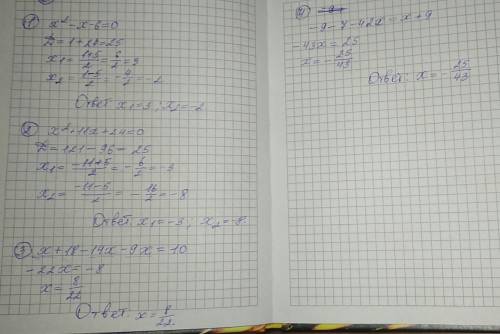 ① x²-x-6=0
D=1+24=25
x₁=(1+5)/2=6/2=3
x₂=(1-5)/2=-4/2=-2
Ответ: x₁=3; x₂=-2
② x²+11x+24=0
D=121-96=25
x₁=(-11+5)/2=-6/2=-3
x₂=(-11-5)/2=-16/2=-8
Ответ: x₁=-3; x₂=-8.
③ x+18-14x-9x=10
-22x=-8
x=8/22
Ответ: x=8/22.
④
-9-7-42x=x+9
-43x=25
x=-25/43
Ответ: x=-25/43